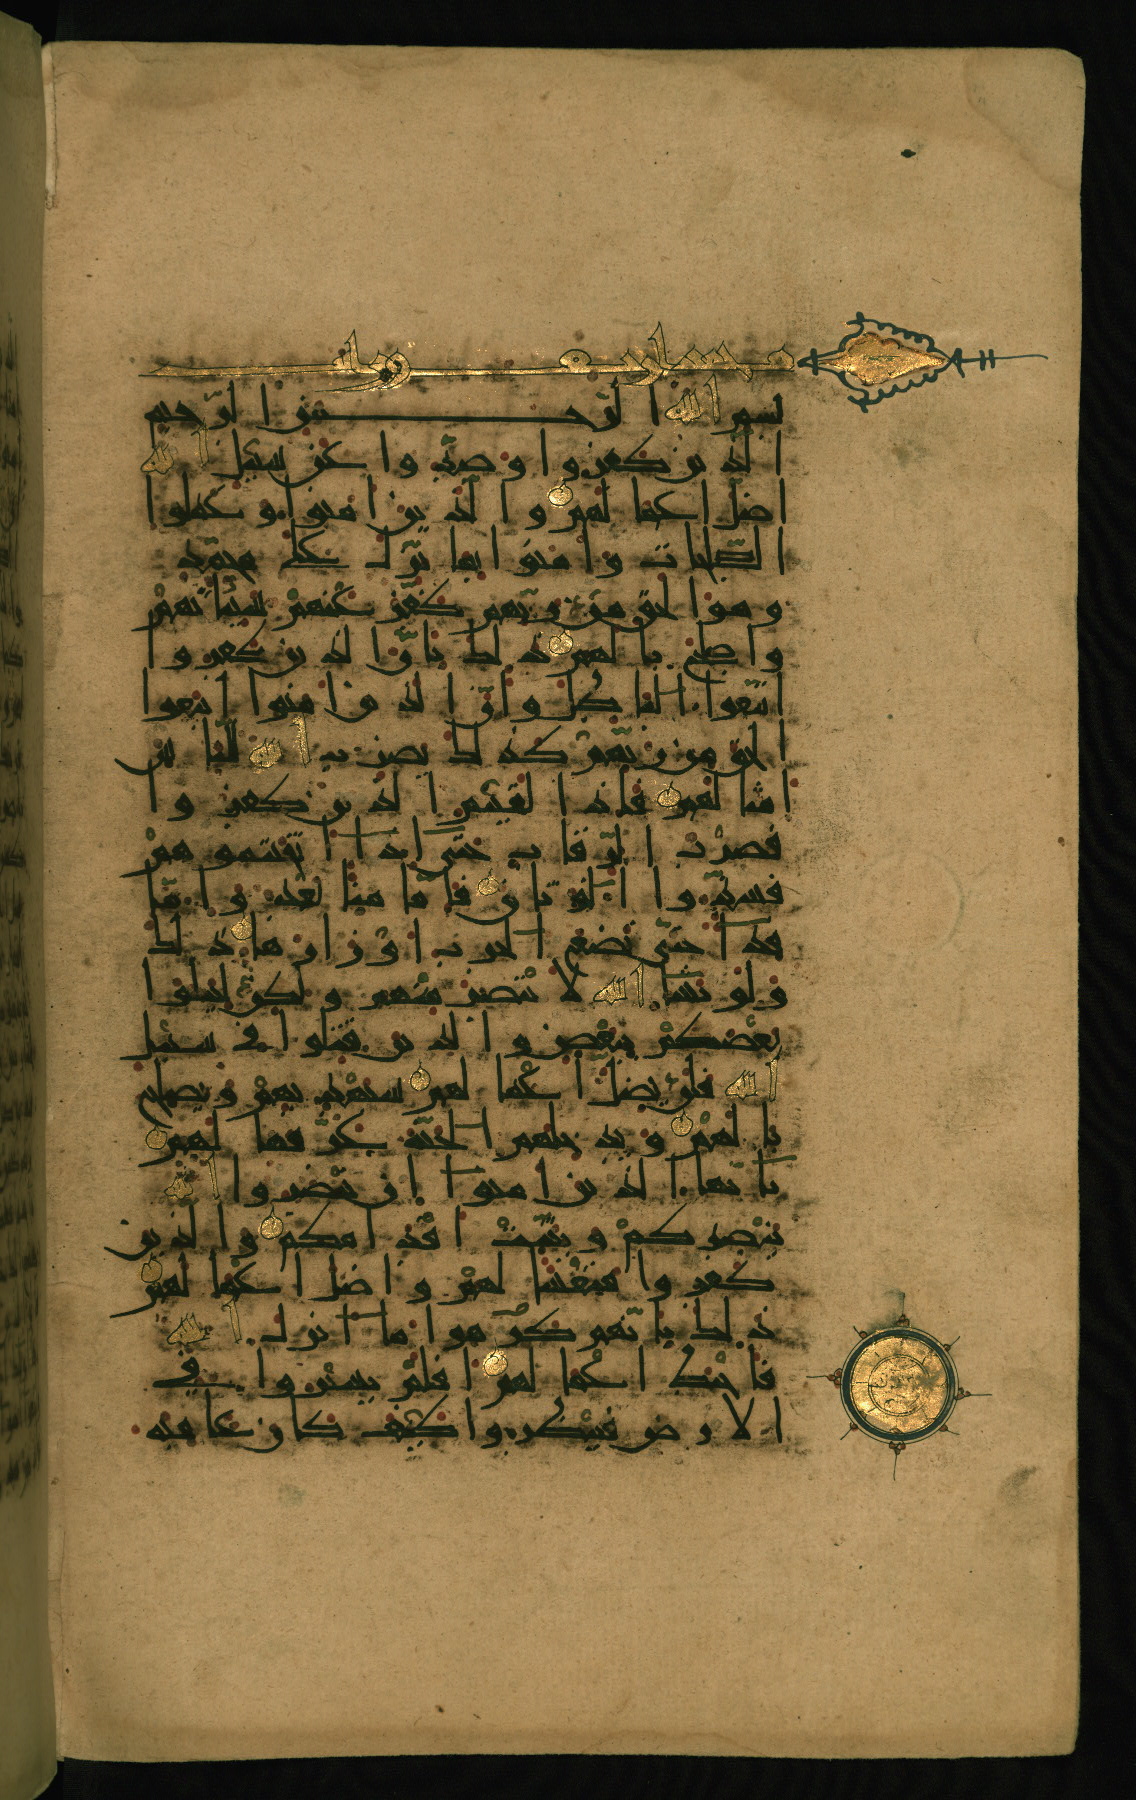 بسم الله الرحمن الرحيم
الذين كفروا وصدوا عن سبيل الله
اضل اعمالهم والذين امنوا وعملوا
الصلحات وامنوا بما نزل على محمد
وهو الحق من ربهم كفر عنهم سياتهم
واصلح بالهم ذلك بان الذين كفروا
اتبعوا الباطل وان الذين امنوا اتبعوا
الحق من ربهم كذلك يضرب الله للناس
امثالهم فاذا لقيتم الذين كفروا
فضرب الرقاب حتى اذا اثخنتموهم
فشدوا الوثاق فاما منا بعد واما
فدا حتى تضع الحرب اوزارها ذلك
ولو يشا الله لانتصر منهم ولكن ليبلوا
بعضكم ببعض والذين قتلوا في سبيل
الله فلن يضل اعمالهم سيهديهم ويصلح
بالهم ويدخلهم الجنة عرفها لهم
يا ايها الذين امنوا ان تنصروا الله
ينصركم ويثبت اقدامكم والذين
كفروا فتعسا لهم واضل اعمالهم
ذلك بانهم كرهوا ما انزل الله
فاحبط اعمالهم افلم يسيروا في
الارض فينظروا كيف كان عاقبة